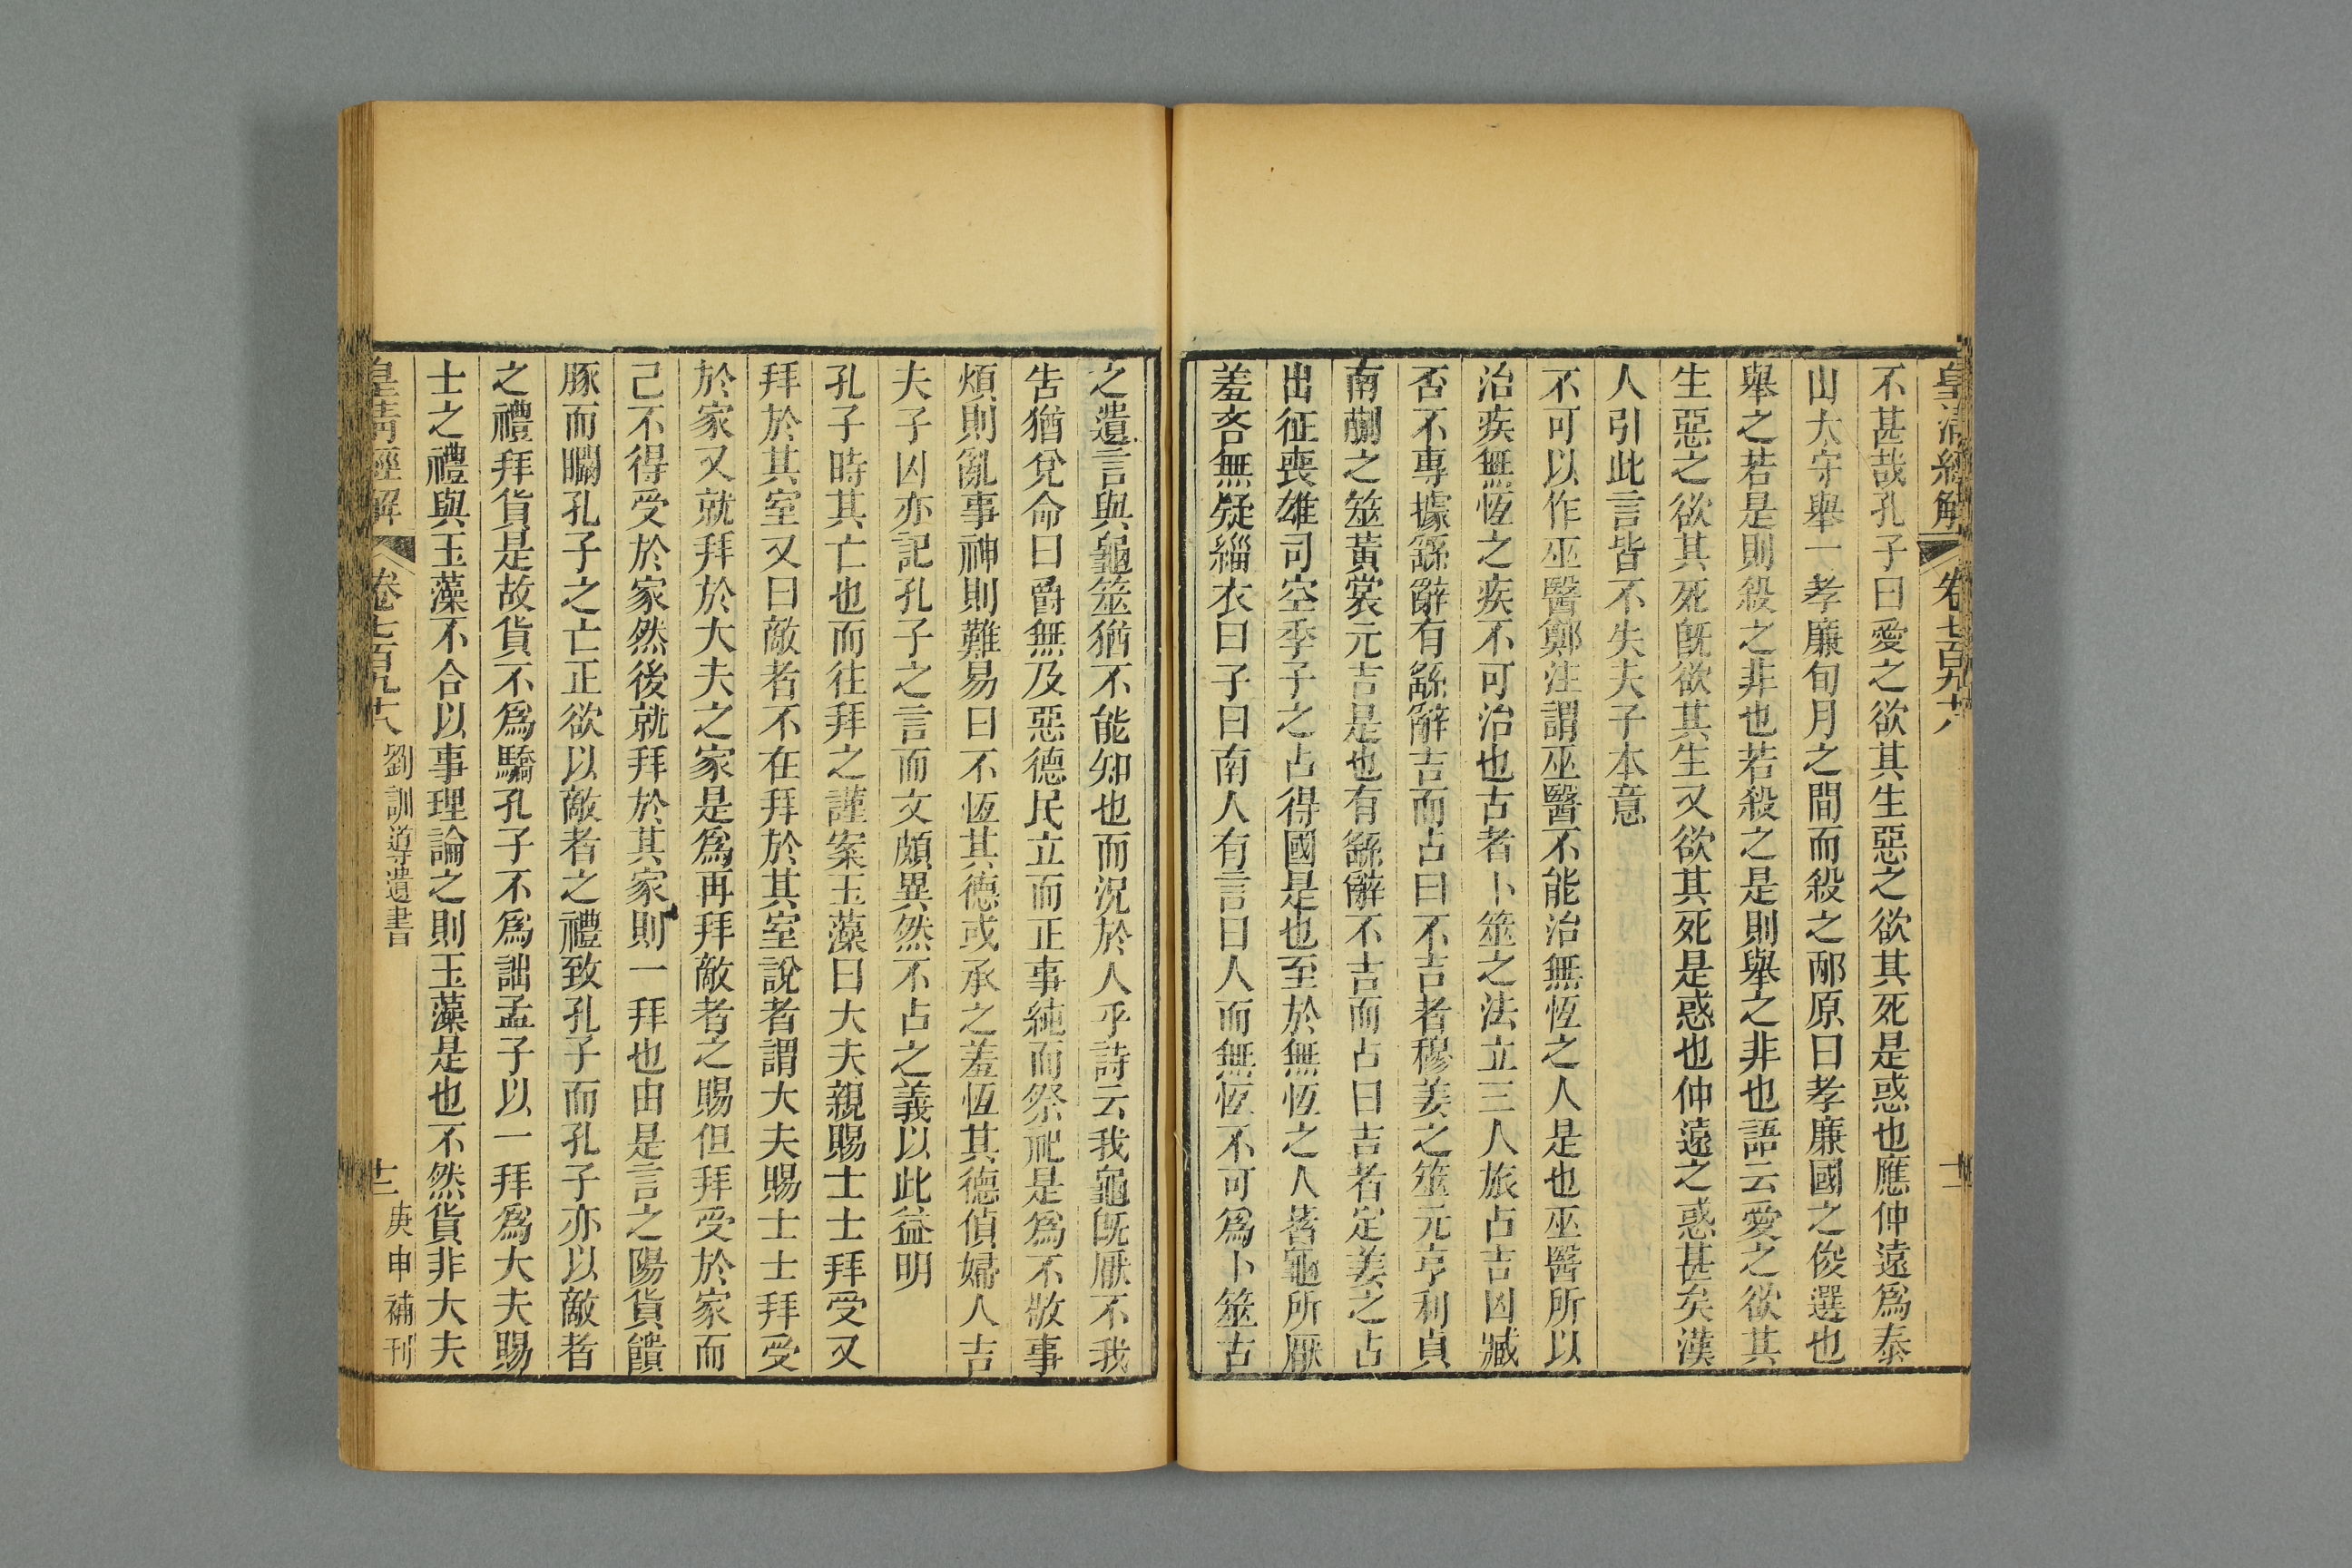 皇清經解 卷七百九十八 十一
不甚哉孔子曰愛之欲其生惡之欲其死是惑也應仲遠爲泰
山太守舉一孝廉旬月之間而殺之邴原曰孝廉國之俊選也
舉之若是則殺之非也若殺之是則舉之非也語云愛之欲其
生惡之欲其死旣欲其生又欲其死是惑也仲遠之惑甚矣漢
人引此言皆不失夫子本意
不可以作巫醫鄭注謂巫醫不能治無恆之人是也巫醫所以
治疾無恆之疾不可治也古者卜筮之法立三人旅占吉凶臧
否不專據繇辭有繇辭吉而占曰不吉者穆姜之筮元亨利貞
南蒯之筮黃裳元吉是也有繇辭不吉而占曰吉者定姜之占
出征喪雄司空季子之占得國是也至於無恆之人蓍龜所厭
羞吝無疑緇衣曰子曰南人有言曰人而無恆不可爲卜筮古
之遺言與龜筮猶不能知也而況於人乎詩云我龜旣厭不我
告猶兌命曰爵無及惡德民立而正事純而祭祀是爲不敬事
煩則亂事神則難易曰不恆其德或承之羞恆其德偵婦人吉
夫子凶亦記孔子之言而文頗異然不占之義以此益明
孔子時其亡也而往拜之謹案玉藻曰大夫親賜士士拜受又
拜於其室又曰敵者不在拜於其室說者謂大夫賜士士拜受
於家又就拜於大夫之家是爲再拜敵者之賜但拜受於家而
己不得受於家然後就拜於其家則一拜也由是言之陽貨饋
豚而矙孔子之亡正欲以敵者之禮致孔子而孔子亦以敵者
之禮拜貨是故貨不爲驕孔子不爲詘孟子以一拜爲大夫賜
士之禮與玉藻不合以事理論之則玉藻是也不然貨非大夫
皇清經解 卷七百九十八 劉訓導遺書 十二 庚申補刊